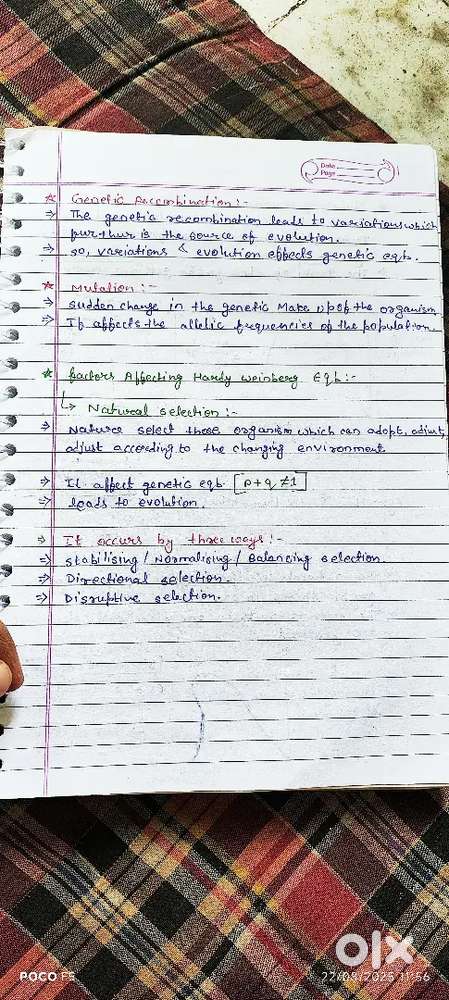 Date
Page
☆ Genetic Recombination :-
⇒ The genetic recombination leads to variations which
furthur is the source of evolution.
⇒ so, variations & evolution effects genetic eqb.
★ Mutation :-
⇒ Sudden change in the genetic Make up of the organism
⇒ It affects the allelic frequencies of the population.
★ factors Affecting Hardy weinberg Eqb :-
↳ Natural selection :-
⇒ Nature select those organism which can adopt, adjust,
adjust according to the changing environment
⇒ It affect genetic eqb [p+q ≠ 1]
⇒ leads to evolution.
⇒ It occurs by three ways :-
⇒ Stabilising / Normalising / Balancing selection.
⇒ Directional selection.
⇒ Disruptive selection.
olx
POCO F5
22/08/2025 11:56